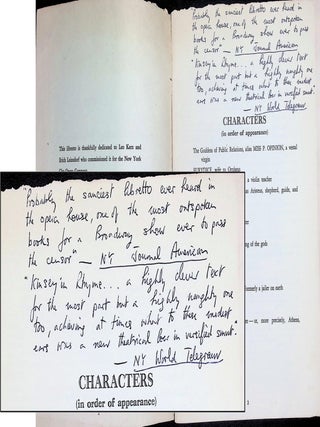 "Probably the sauciest libretto ever heard in
the opera house, one of the most outspoken
books for a Broadway show ever to pass
the censor" — NY Journal American
"Kinsey in Rhyme... a highly clever text
for the most part but a highly naughty one
too, achieving at times what to these modest
ears was a new theatrical low in versified smut.
— NY World Telegram
CHARACTERS
(in order of appearance)
This libretto is thankfully dedicated to Leo Kerz and
Erich Leinsdorf who commissioned it for the New York
City Opera Company.
The Goddess of Public Relations, alias MISS P. OPINION, a vestal
virgin
EURYDICE, wife to Orpheus
a violin teacher
as Aristeus, shepherd, guide, and
of the gods
formerly a jailer on earth
— or, more precisely, Athens,
"Probably the sauciest libretto ever heard in
the opera house, one of the most outspoken
books for a Broadway show ever to pass
the censor" — NY Journal American
"Kinsey in Rhyme... a highly clever text
for the most part but a highly naughty one
too, achieving at times what to these modest
ears was a new theatrical low in versified smut.
— NY World Telegram
CHARACTERS
(in order of appearance)